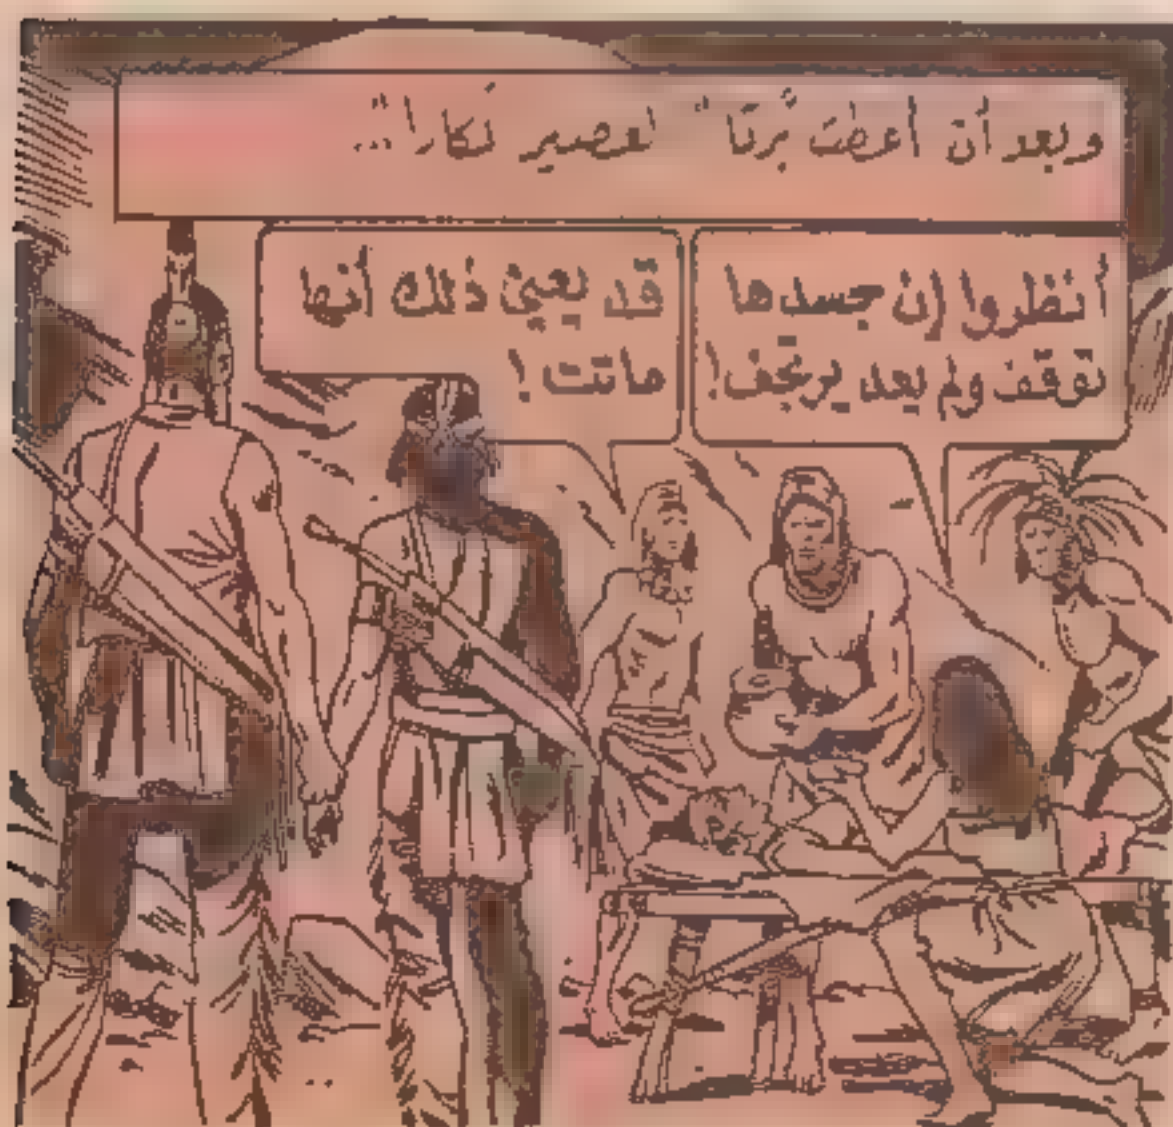 وبعد أن أعطت برتا" لعصير نكارا"..
أنظروا إن جسدها
توقف ولم يعد يرتجف!
قد يعني ذلك أنها
ماتت!